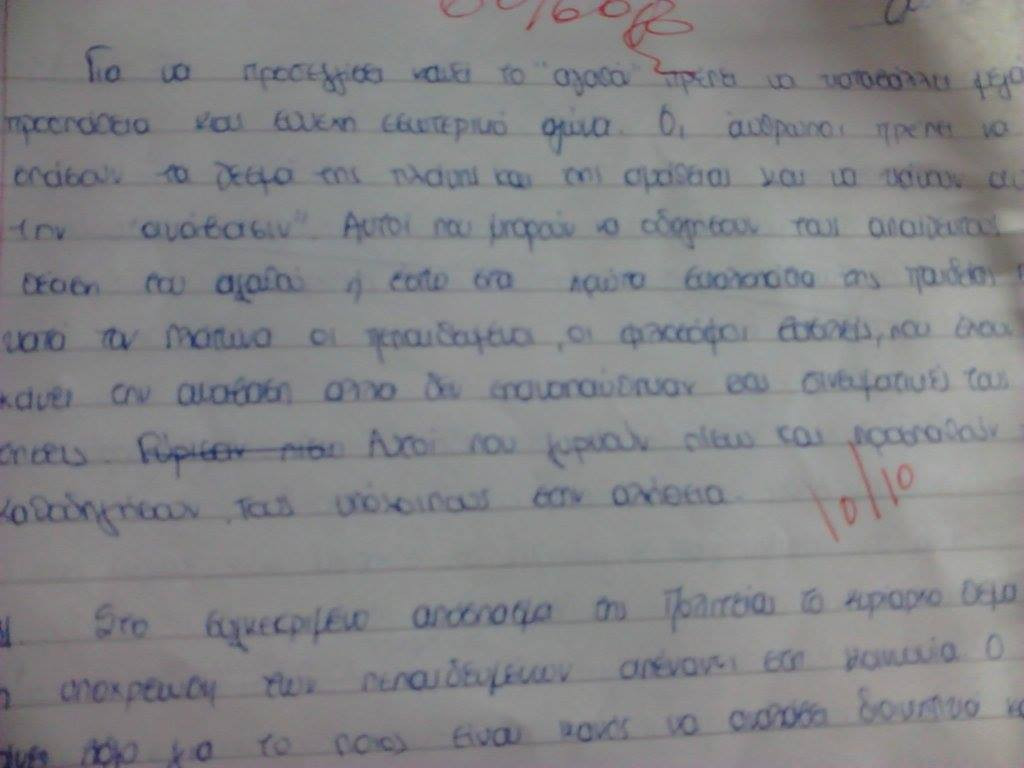 Για να προσεγγίσει κανεί το "αγαθό" πρέπει να καταβάλλει μεγά
προσπάθεια και συνεχή εσωτερικό αγώνα. Οι άνθρωποι πρέπει να
σπάσουν τα δεσμά της πλάνης και της αμάθειας και να κάνουν αυ
την "ανάβασιν". Αυτοί που μπορούν να οδηγήσουν τους απαίδευτους
θέαση του αγαθού ή έστω στα πρώτα σκαλοπάτια της παιδείας
κατά τον Πλάτωνα οι πεπαιδευμένοι, οι φιλόσοφοι βασιλείς, που έχουν
κάνει την ανάβαση αλλά δεν επαναπαύθηκαν στις πνευματικές τους
Αυτοί που γυρνούν πίσω και προσπαθούν
καθοδηγήσουν τους υπόλοιπους στην αλήθεια.
10/10
Στο συγκεκριμένο απόσπασμα της Πολιτείας το κυρίαρχο θέμα
η υποχρέωση των πεπαιδευμένων απέναντι στη κοινωνία. Ο
λόγο για το ποιος είναι ικανός να αναλάβει διοικητικό